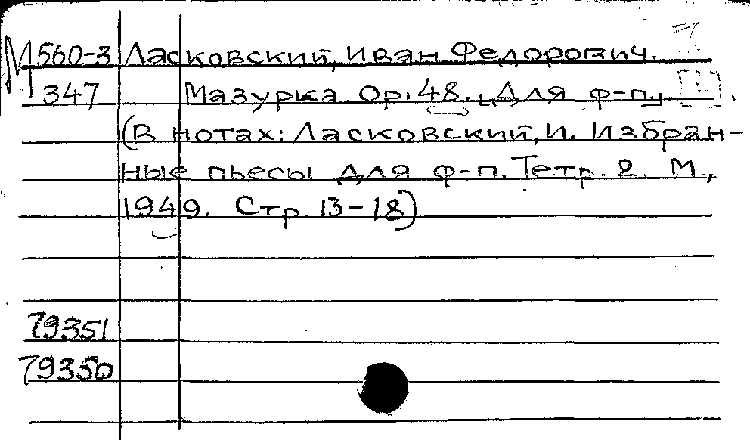 М 560-3 Ласковский, Иван Федорович.
347 Мазурка Ор. 48. [Для ф-п.]
(В нотах: Ласковский, И. Избран-
ные пьесы для ф-п. Тетр. 2. М.,
1949. Стр. 13-18)
79351
79350